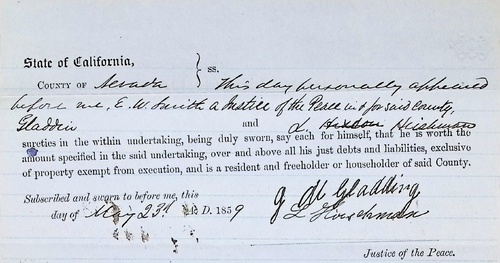 State of California,
County of Nevada } ss. This day personally appeared
before me, E. W. Smith a Justice of the Peace in & for said County,
Gladdin and L. Hirschman
sureties in the within undertaking, being duly sworn, say each for himself, that he is worth the
amount specified in the said undertaking, over and above all his just debts and liabilities, exclusive
of property exempt from execution, and is a resident and freeholder or householder of said County.
Subscribed and sworn to before me, this
day of May 23d A. D. 1859
J. M. Gladding
L Hirschman
Justice of the Peace.